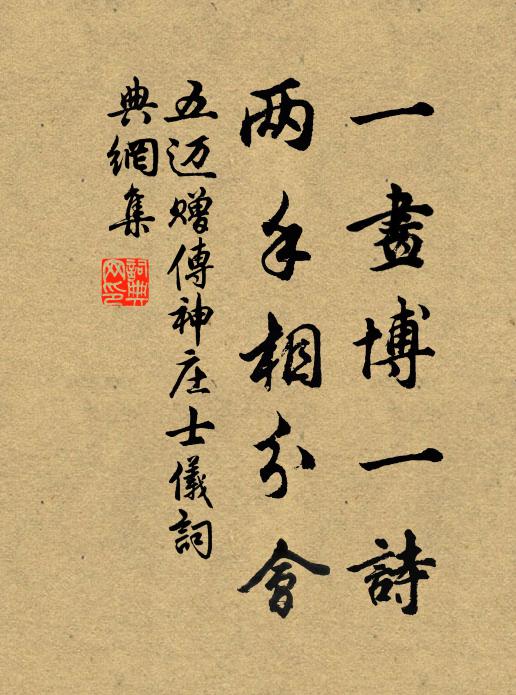 一畫博一詩
兩手相分會
五迈赠傳神庄士儀詞
典網集
詞典
网印